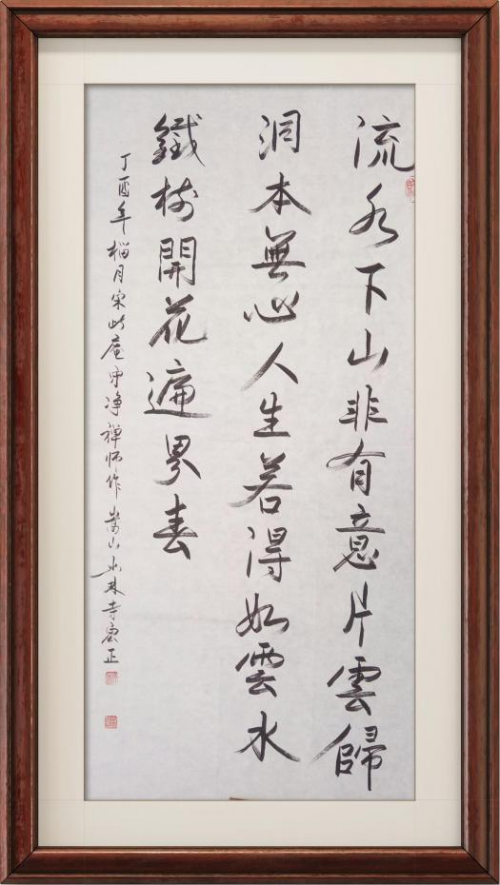 流水下山非有意片雲歸
洞本無心人生若得如雲水
鐵樹開花遍界春
丁酉年榴月宋此庵守淨禪師作嵩山少林寺宏正